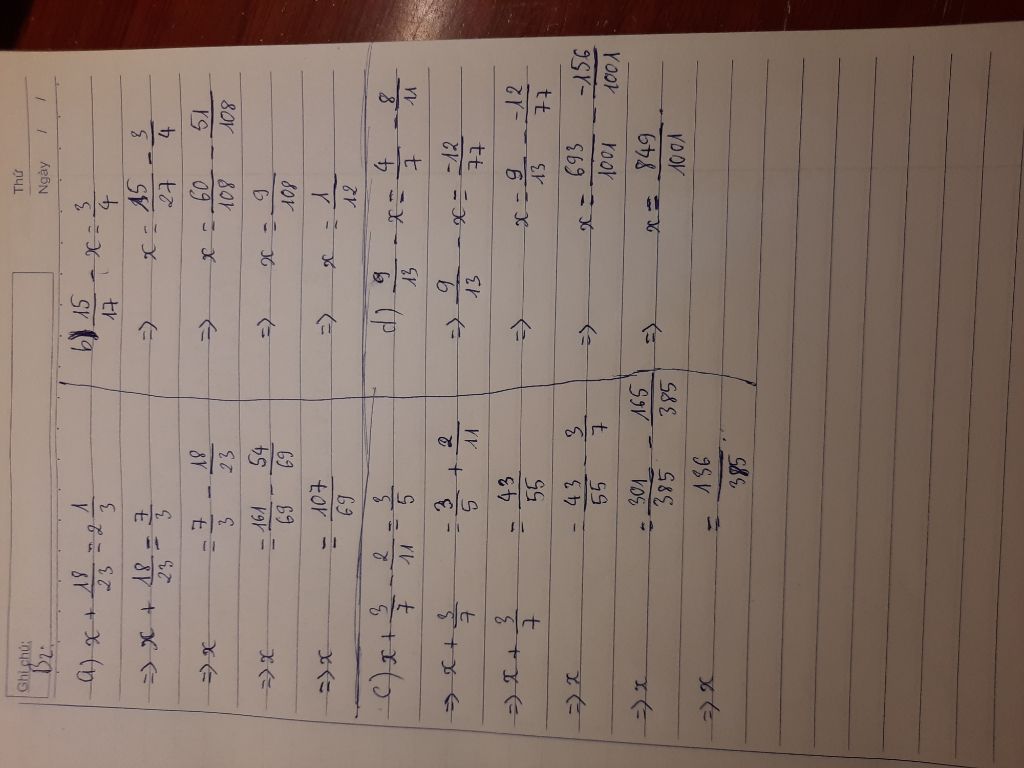 Thứ
Ngày / /
Ghi chú:
B2.
a) x + 18/23 = 2 1/3
=> x + 18/23 = 7/3
=> x = 7/3 - 18/23
=> x = 161/69 - 54/69
=> x = 107/69
b) 15/17 - x = 3/4
=> x = 15/27 - 3/4
=> x = 60/108 - 51/108
=> x = 9/108
=> x = 1/12
c) x + 3/7 - 2/11 = 3/5
=> x + 3/7 = 3/5 + 2/11
=> x + 3/7 = 43/55
=> x = 43/55 - 3/7
=> x = 301/385 - 165/385
=> x = 136/385
d) 9/13 - x = 4/7 - 8/11
=> 9/13 - x = -12/77
=> x = 9/13 - -12/77
=> x = 693/1001 - -156/1001
=> x = 849/1001